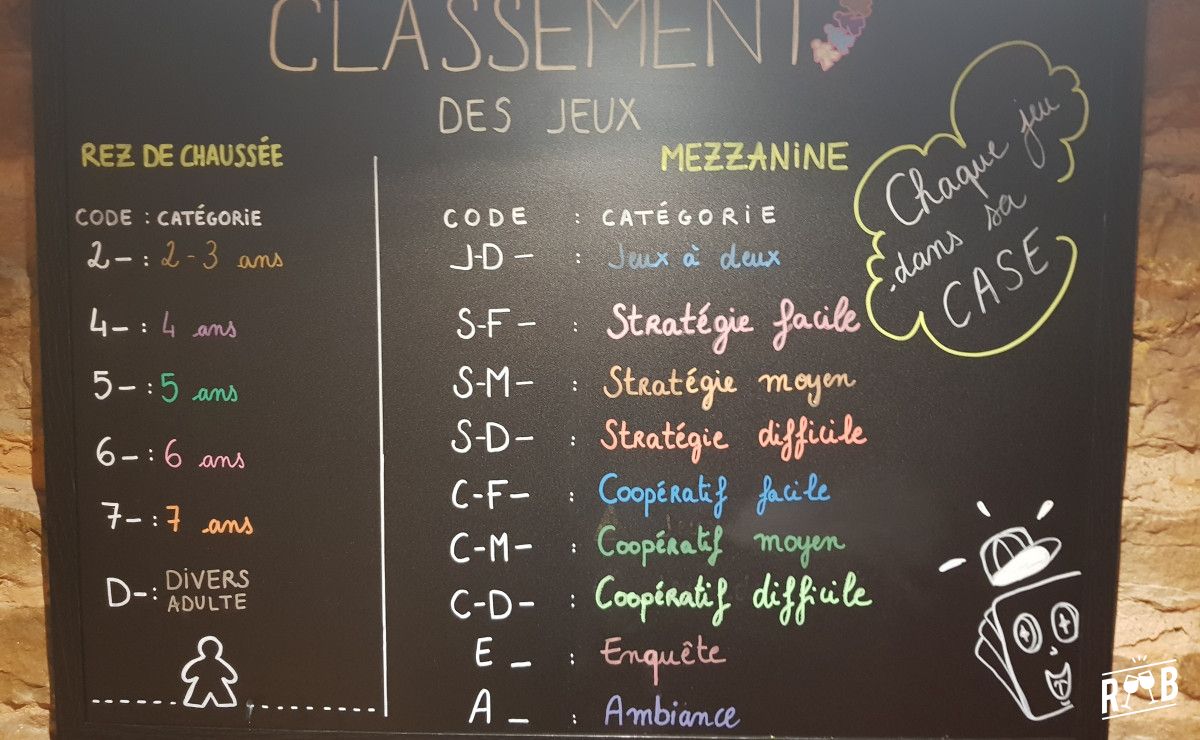 CLASSEMENT
DES JEUX
REZ DE CHAUSSÉE
CODE : CATÉGORiE
2– : 2-3 ans
4– : 4 ans
5– : 5 ans
6– : 6 ans
7– : 7 ans
D–: DiVERS
ADULTE
MEZZANiNE
CODE : CATÉGORiE
J-D – : Jeux à deux
S-F – : Stratégie facile
S-M– : Stratégie moyen
S-D– : Stratégie difficile
C-F– : Coopératif facile
C-M– : Coopératif moyen
C-D– : Coopératif difficile
E _ : Enquête
A _ : Ambiance
Chaque jeu
dans sa
CASE
R B